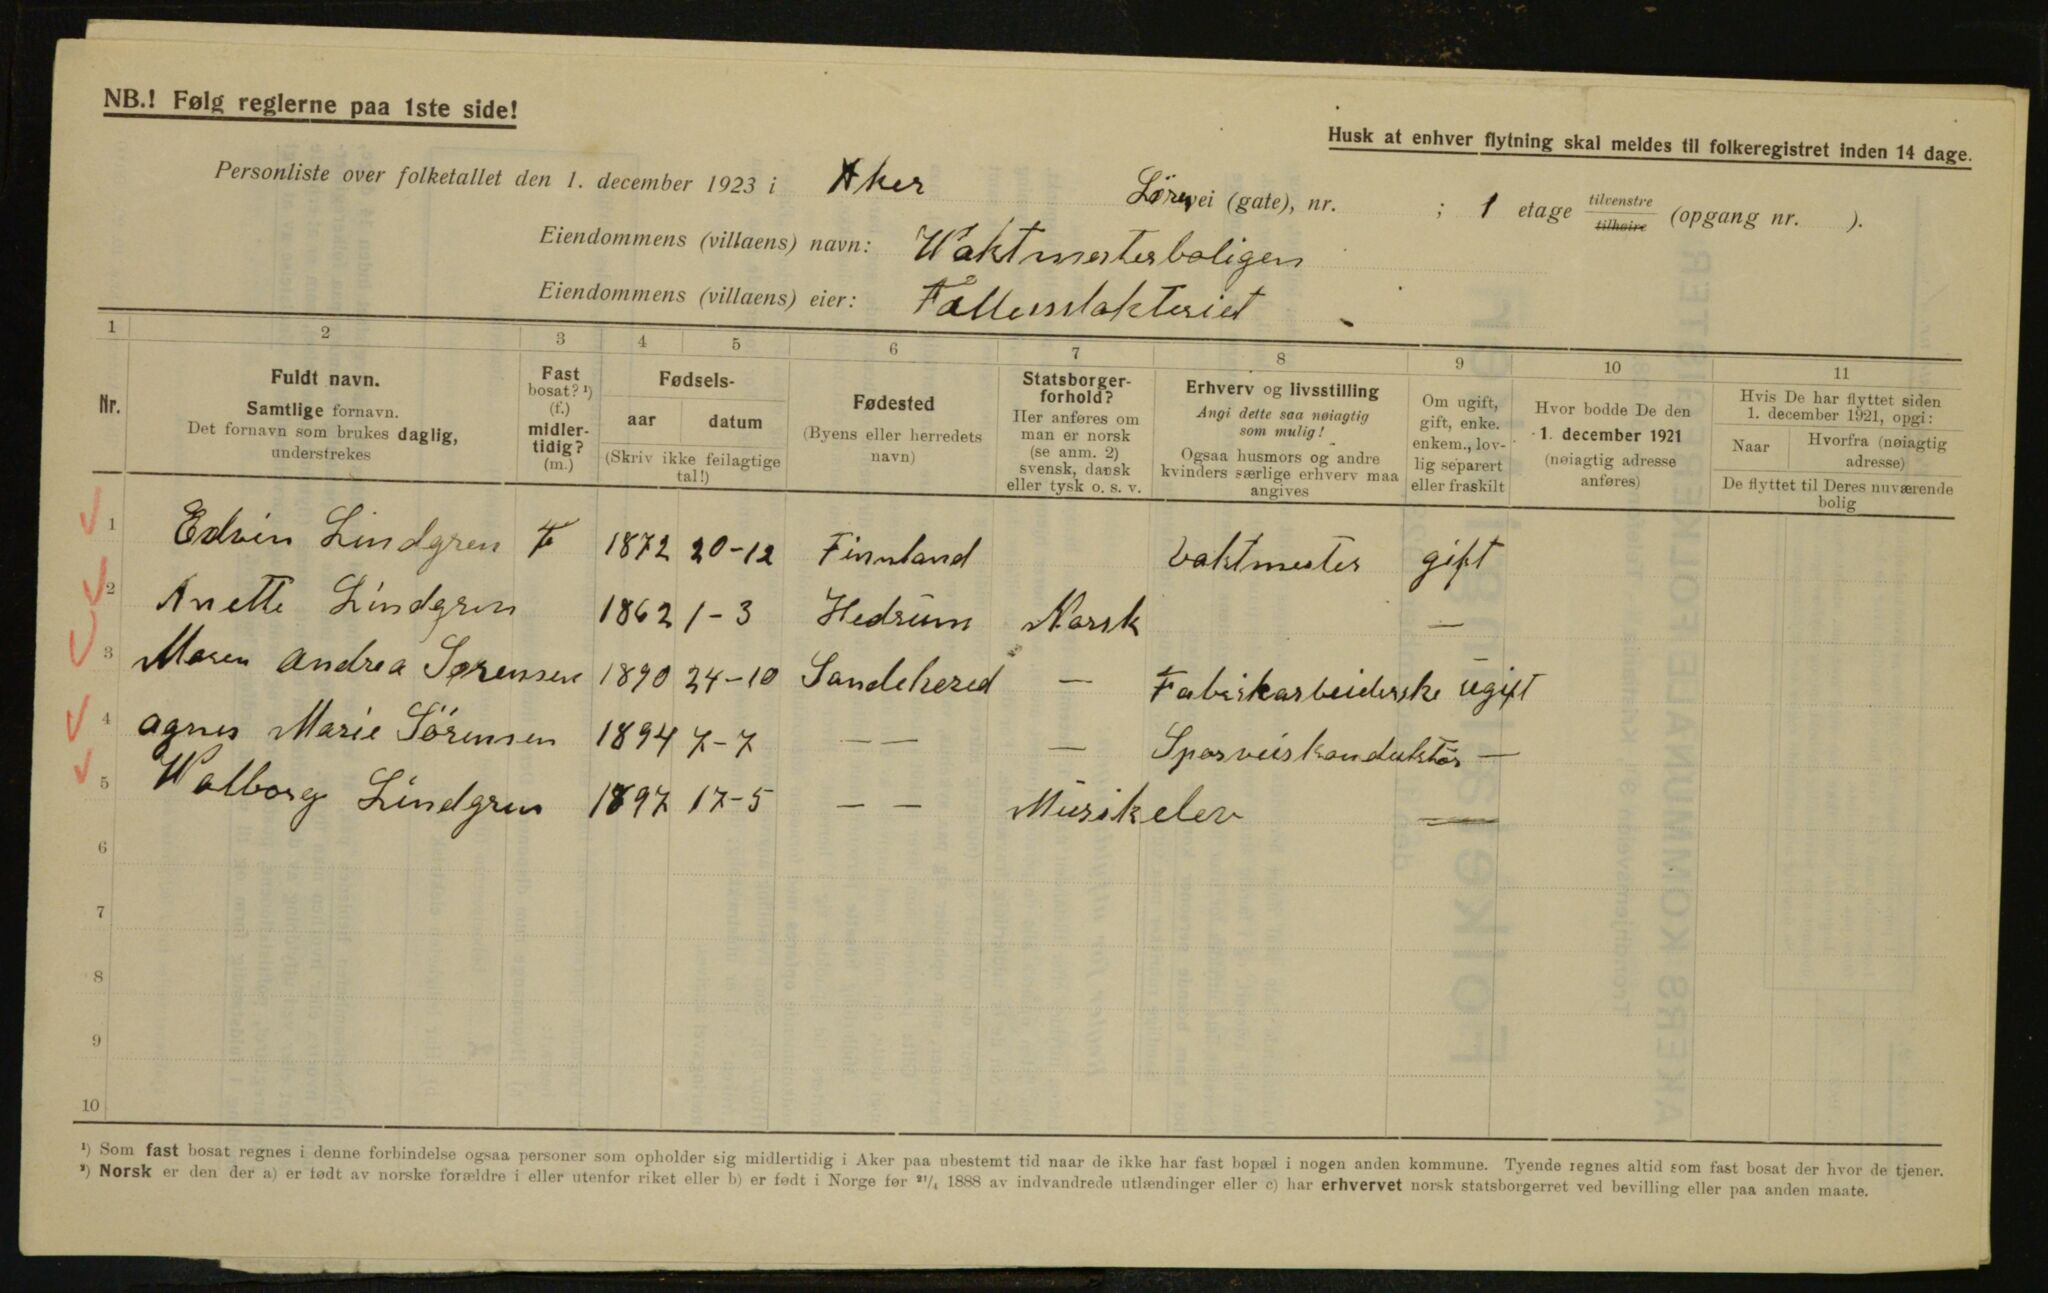 NB.! Følg reglerne paa 1ste side!
Husk at enhver flytning skal meldes til folkeregistret inden 14 dage.
Personliste over folketallet den 1. december 1923 i Aker Lørenvei (gate), nr. ; 1 etage tilvenstre tilhøire (opgang nr. ).
Eiendommens (villaens) navn: Waktmesterboligen
Eiendommens (villaens) eier: Fællesslakteriet
1 2 3 4 5 6 7 8 9 10 11
Nr.
Fuldt navn.
Samtlige fornavn.
Det fornavn som brukes daglig,
understrekes
Fast
bosat? ¹)
(f.)
midler-
tidig?
(m.)
Fødsels-
aar datum
(Skriv ikke feilagtige
tal!)
Fødested
(Byens eller herredets
navn)
Statsborger-
forhold?
Her anføres om
man er norsk
(se anm. 2)
svensk, dansk
eller tysk o. s. v.
Erhverv og livsstilling
Angi dette saa nøiagtig
som mulig!
Ogsaa husmors og andre
kvinders særlige erhverv maa
angives
Om ugift,
gift, enke.
enkem., lov-
lig separert
eller fraskilt
Hvor bodde De den
1. december 1921
(nøiagtig adresse
anføres)
Hvis De har flyttet siden
1. december 1921, opgi:
Naar Hvorfra (nøiagtig
adresse)
De flyttet til Deres nuværende
bolig
1 Edvin Lindgren F 1872 20-12 Finnland Vaktmester gift
2 Anette Lindgren 1862 1-3 Hedrum Norsk —
3 Maren Andrea Sørensen 1890 24-10 Sandeherred — Fabrikarbeiderske ugift
4 Agnes Marie Sørensen 1894 7-7 — — — Sporveiskonduktør —
5 Walborg Lindgren 1897 17-5 — — Musikelev —
6
7
8
9
10
¹) Som fast bosat regnes i denne forbindelse ogsaa personer som opholder sig midlertidig i Aker paa ubestemt tid naar de ikke har fast bopæl i nogen anden kommune. Tyende regnes altid som fast bosat der hvor de tjener.
²) Norsk er den der a) er født av norske forældre i eller utenfor riket eller b) er født i Norge før ²¹/₄ 1888 av indvandrede utlændinger eller c) har erhvervet norsk statsborgerret ved bevilling eller paa anden maate.